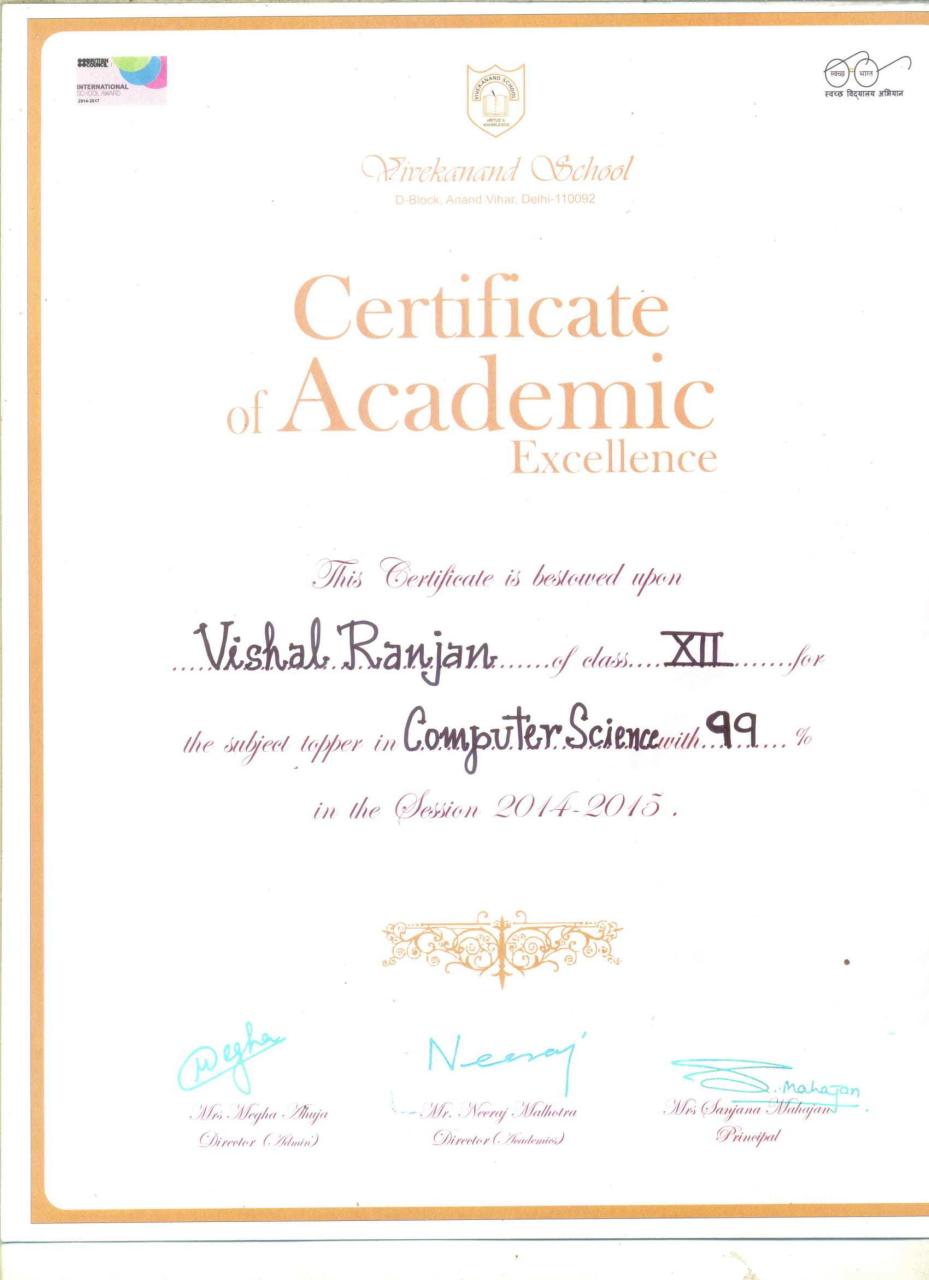 BRITISH
COUNCIL
INTERNATIONAL
SCHOOL AWARD
2014-2017
VIVEKANAND SCHOOL
VIRTUE &
KNOWLEDGE
स्वच्छ भारत
स्वच्छ विद्यालय अभियान
Vivekanand School
D-Block, Anand Vihar, Delhi-110092
Certificate
of Academic
Excellence
This Certificate is bestowed upon
Vishal Ranjan of class XII for
the subject topper in Computer Science with 99 %
in the Session 2014-2015 .
Megha Neeraj S. Mahajan
Mrs Megha Ahuja Mr. Neeraj Malhotra Mrs Sanjana Mahajan
Director (Admin) Director (Academics) Principal